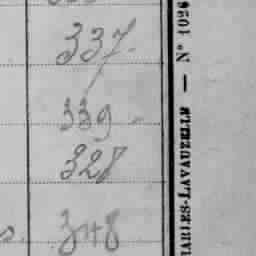 337.
339
328
348
s.
CHARLES-LAVAUZELLE — N° 1026